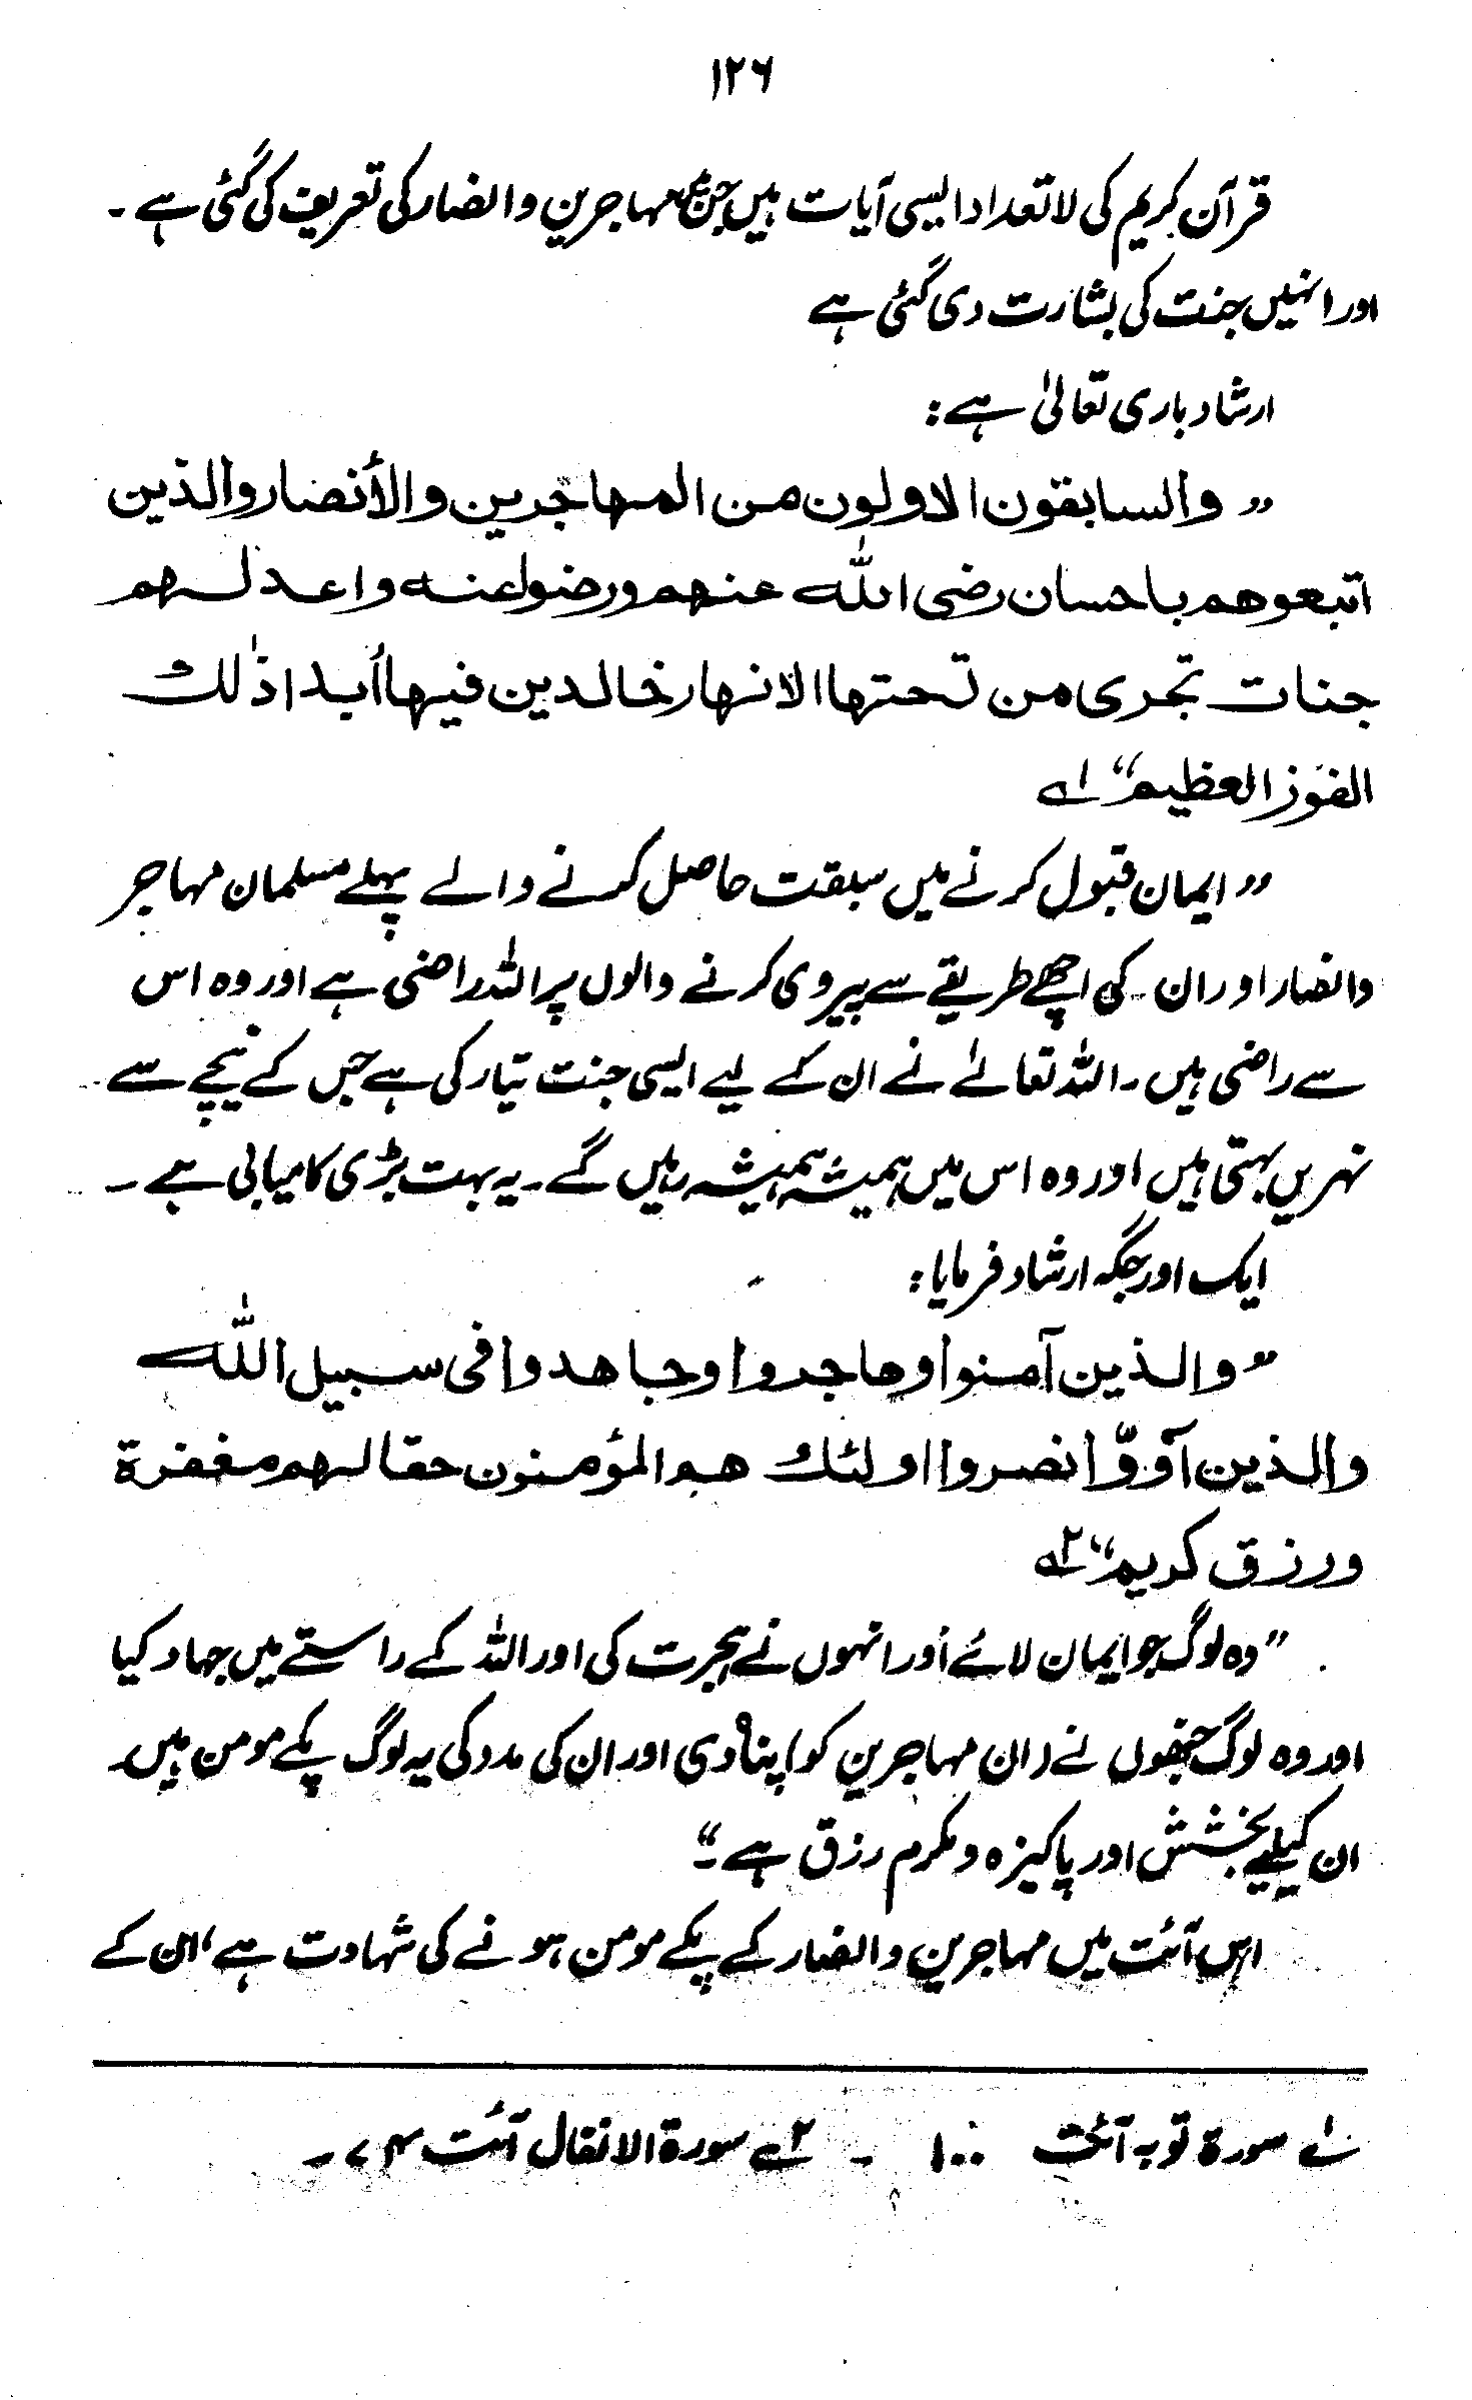 ۱۲۶
قرآن کریم کی لاتعداد ایسی آیات ہیں جن میں مہاجرین و انصار کی تعریف کی گئی ہے ۔
اور انہیں جنت کی بشارت دی گئی ہے
ارشاد باری تعالیٰ ہے :
” والسابقون الاولون من المهاجرين والأنصار والذين
اتبعوهم باحسان رضى الله عنهم ورضوا عنه واعد لهم
جنات تجرى من تحتها الانهار خالدين فيها أبدا ذٰلك
الفوز العظيم “ ۱؎
” ایمان قبول کرنے میں سبقت حاصل کرنے والے پہلے مسلمان مہاجر
وانصار اور ان کی اچھے طریقے سے پیروی کرنے والوں پر اللہ راضی ہے اور وہ اس
سے راضی ہیں ۔ اللہ تعالےٰ نے ان کے لیے ایسی جنت تیار کی ہے جس کے نیچے سے
نہریں بہتی ہیں اور وہ اس میں ہمیشہ ہمیشہ رہیں گے ۔ یہ بہت بڑی کامیابی ہے ۔
ایک اور جگہ ارشاد فرمایا :
” والذين آمنوا وهاجروا وجاهدوا فى سبيل الله
والذين آووّا نصروا اولئك هم المؤمنون حقا لهم مغفرة
ورزق كريم “ ۲؎
” وہ لوگ جو ایمان لائے اور انہوں نے ہجرت کی اور اللہ کے راستے میں جہاد کیا
اور وہ لوگ جنھوں نے ان مہاجرین کو پناہ دی اور ان کی مدد کی یہ لوگ پکے مومن ہیں۔
ان کیلیے بخشش اور پاکیزہ و مکرم رزق ہے ۔“
اس آئت میں مہاجرین و انصار کے پکے مومن ہونے کی شہادت ہے ، ان کے
۱؎ سورۃ توبہ آئت ۱۰۰ ۔ ۲؎ سورۃ الانفال آئت ۷۴ ۔